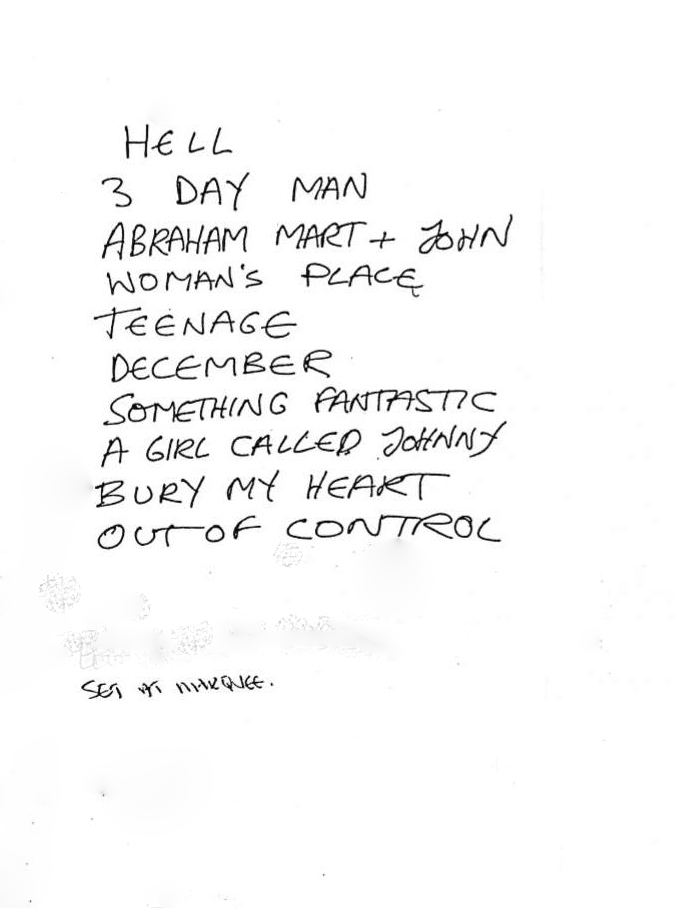 HELL
3 DAY MAN
ABRAHAM MART + JOHN
WOMAN'S PLACE
TEENAGE
DECEMBER
SOMETHING FANTASTIC
A GIRL CALLED JOHNNY
BURY MY HEART
OUT OF CONTROL
SET AT MARQUEE.